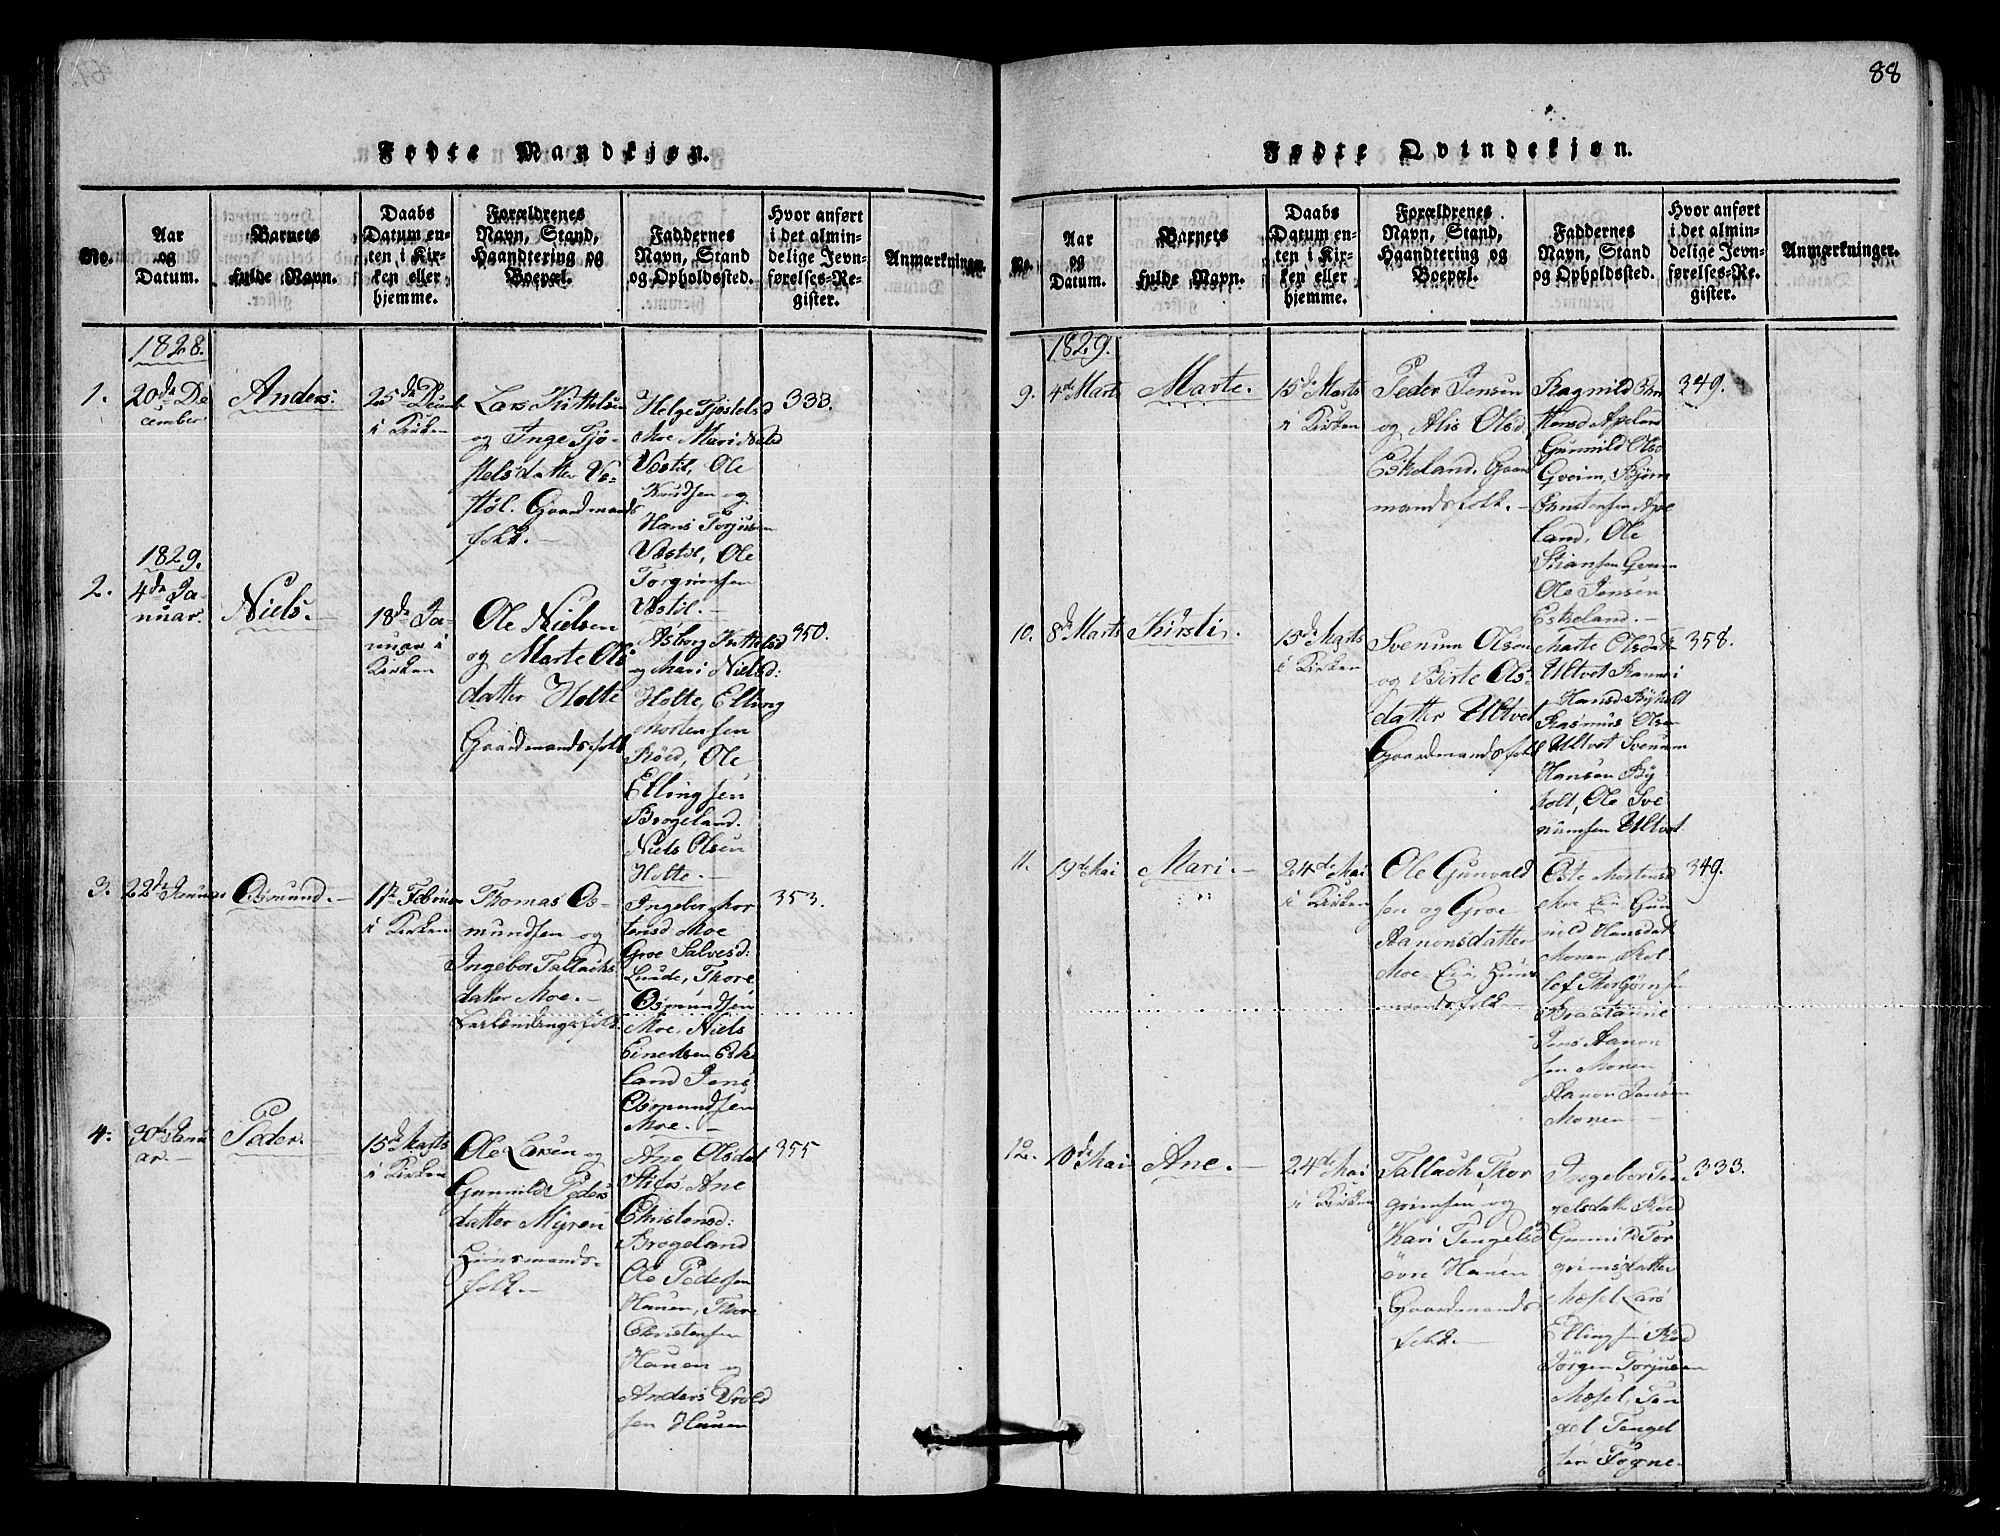 88
Fødte Mandkjøn.
No.
Aar
og
Datum.
Barnets
fulde Navn.
Daabs
Datum en-
ten i Kir-
ken eller
hjemme.
Forældrenes
Navn, Stand,
Haandtering og
Boepæl.
Faddernes
Navn, Stand
og Opholdssted.
Hvor anført
i det almin-
delige Jevn-
førelses-Re-
gister.
Anmærkninger.
1828.
1.
20de De
cember
Anders.
25de Decemb
i Kirken
Lars Kittelsen
og Inge Tjø-
stelsdatter Ve-
støl. Gaardmands
folk.
Helge Tjøstelsd
Moe, Mari Nielsd
Væstil, Ole
Knudsen og
Hans Torjusen
Væstil, Ole
Torgrimsen
Væstil.
333.
1829.
2.
4de Ja-
nuar.
Niels.
18de Ja-
nuar i
Kirken
Ole Nielsen
og Marte Ols
datter Holte
Gaardmandsfolk
Asborg Kittelsd
og Mari Nielsd:
Holte, Elling
Mortensen
Röed, Ole
Ellingsen
Brogeland.
Niels Olsen
Holte.
350.
3.
22de Januar
Osmund.
1te Februar
i Kirken
Thomas Os-
mundsen og
Ingebor Tallachs
datter Moe.
Ingeborg Mor
tensd Moe
Groe Salvesd:
Lunde, Thore
Osmundsen
Moe, Niels
Einersen Eske
land Jens
Osmundsen
Moe.
353.
4.
30te Janu
ar.
Peder.
15de Marts
i Kirken
Ole Larsen og
Gunnild Peders
datter Myren
Huusmands-
folk.
Ane Olsdat
Stifös, Ane
Christensd:
Brogeland
Ole Pedersen
Hauen, Thore
Christensen
Hauen og
Anders Evold
sen Hauen
355
Fødte Qvindekjøn.
No.
Aar
og
Datum.
Barnets
fulde Navn.
Daabs
Datum en-
ten i Kir-
ken eller
hjemme.
Forældrenes
Navn, Stand,
Haandtering og
Boepæl.
Faddernes
Navn, Stand
og Opholdssted.
Hvor anført
i det almin-
delige Jevn-
førelses-Re-
gister.
Anmærkninger.
1829.
9.
4de Marts
Marte.
15de Marts
i Kirken
Peder Jensen
og Alis Olsd,
Eskeland. Gaard
mandsfolk.
Ragnild
Apeland
Gunnild Olsd
Gveim, Bjørn
Ape
land, Ole
Stiansen Gveim
Ole Jensen
Eskeland.
349.
10.
8de Marts
Kirsti.
15de Marts
i Kirken
Svenum Olsen
og Birte Ols-
datter Ultvet
Gaardmandsfolk
Marte Olsdatter
Ultvet Ranni
Hansd Byholt
Rasmus Olsen
Ultvet Svenum
Hansen By
holt, Ole Sve
numsen Ultvet
358.
11.
19de Mai
Mari.
24de Mai
i Kirken
Ole Gunvald
sen og Groe
Aanonsdatter
Moe Eie, Huus
mandsfolk
Oste Mortensd
Moe Eie Gun
nild Hansdat
Monen, Rol
lef Thorbjørnsen
Braatanne
Jens Aanon
sen Monen
Aanon Jensen
Monen
349.
12.
10de Mai
Ane.
24de Mai
i Kirken
Tallach Thor
grimsen og
Kari Tengelsd
övre Hauen
Gaardmands
folk.
Ingebor Ten
gelsdatt Röed
Gunnild Tor
grimsdatter
Mæsel Lars
Ellingsen Röd
Jörgen Torjusen
Mæsel, Ten
gel Tengel
sen Fogne.
333.